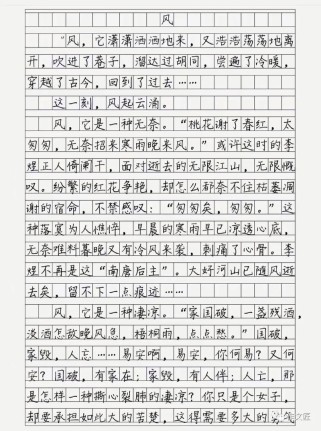 风
“风，它潇潇洒洒地来，又浩浩荡荡地离
开，吹进了巷子，溜达过胡同，尝遍了冷暖，
穿越了古今，回到了过去……
这一刻，风起云涌。
风，它是一种无奈。“桃花谢了春红，太
匆匆，无奈招来寒雨晚来风。”或许这时的李
煜正人倚阑干，面对逝去的无限江山，无限慨
叹。纷繁的红花争艳，却怎么都奈不住枯萎凋
谢的宿命，不禁感叹：“匆匆矣，匆匆。”这
种落寞为人憔悴，早晨的寒雨早已凉透心底，
无奈难料暮晚又有冷风来袭，刺痛了心骨。李
煜不再是这“南唐后主”。大好河山已随风逝
去矣，留不下一点痕迹……
风，它是一种凄凉。“家国破，一盏残酒，
淡酒怎敌晚风急，梧桐雨，点点愁。”国破，
家毁，人亡……易安啊，易安，你何易？又何
安？国破，有家在；家毁，有人伴；人亡，那
是怎样一种撕心裂肺的凄凉？你只是个女子，
却要承担如此大的苦楚，这得需要多大的勇气